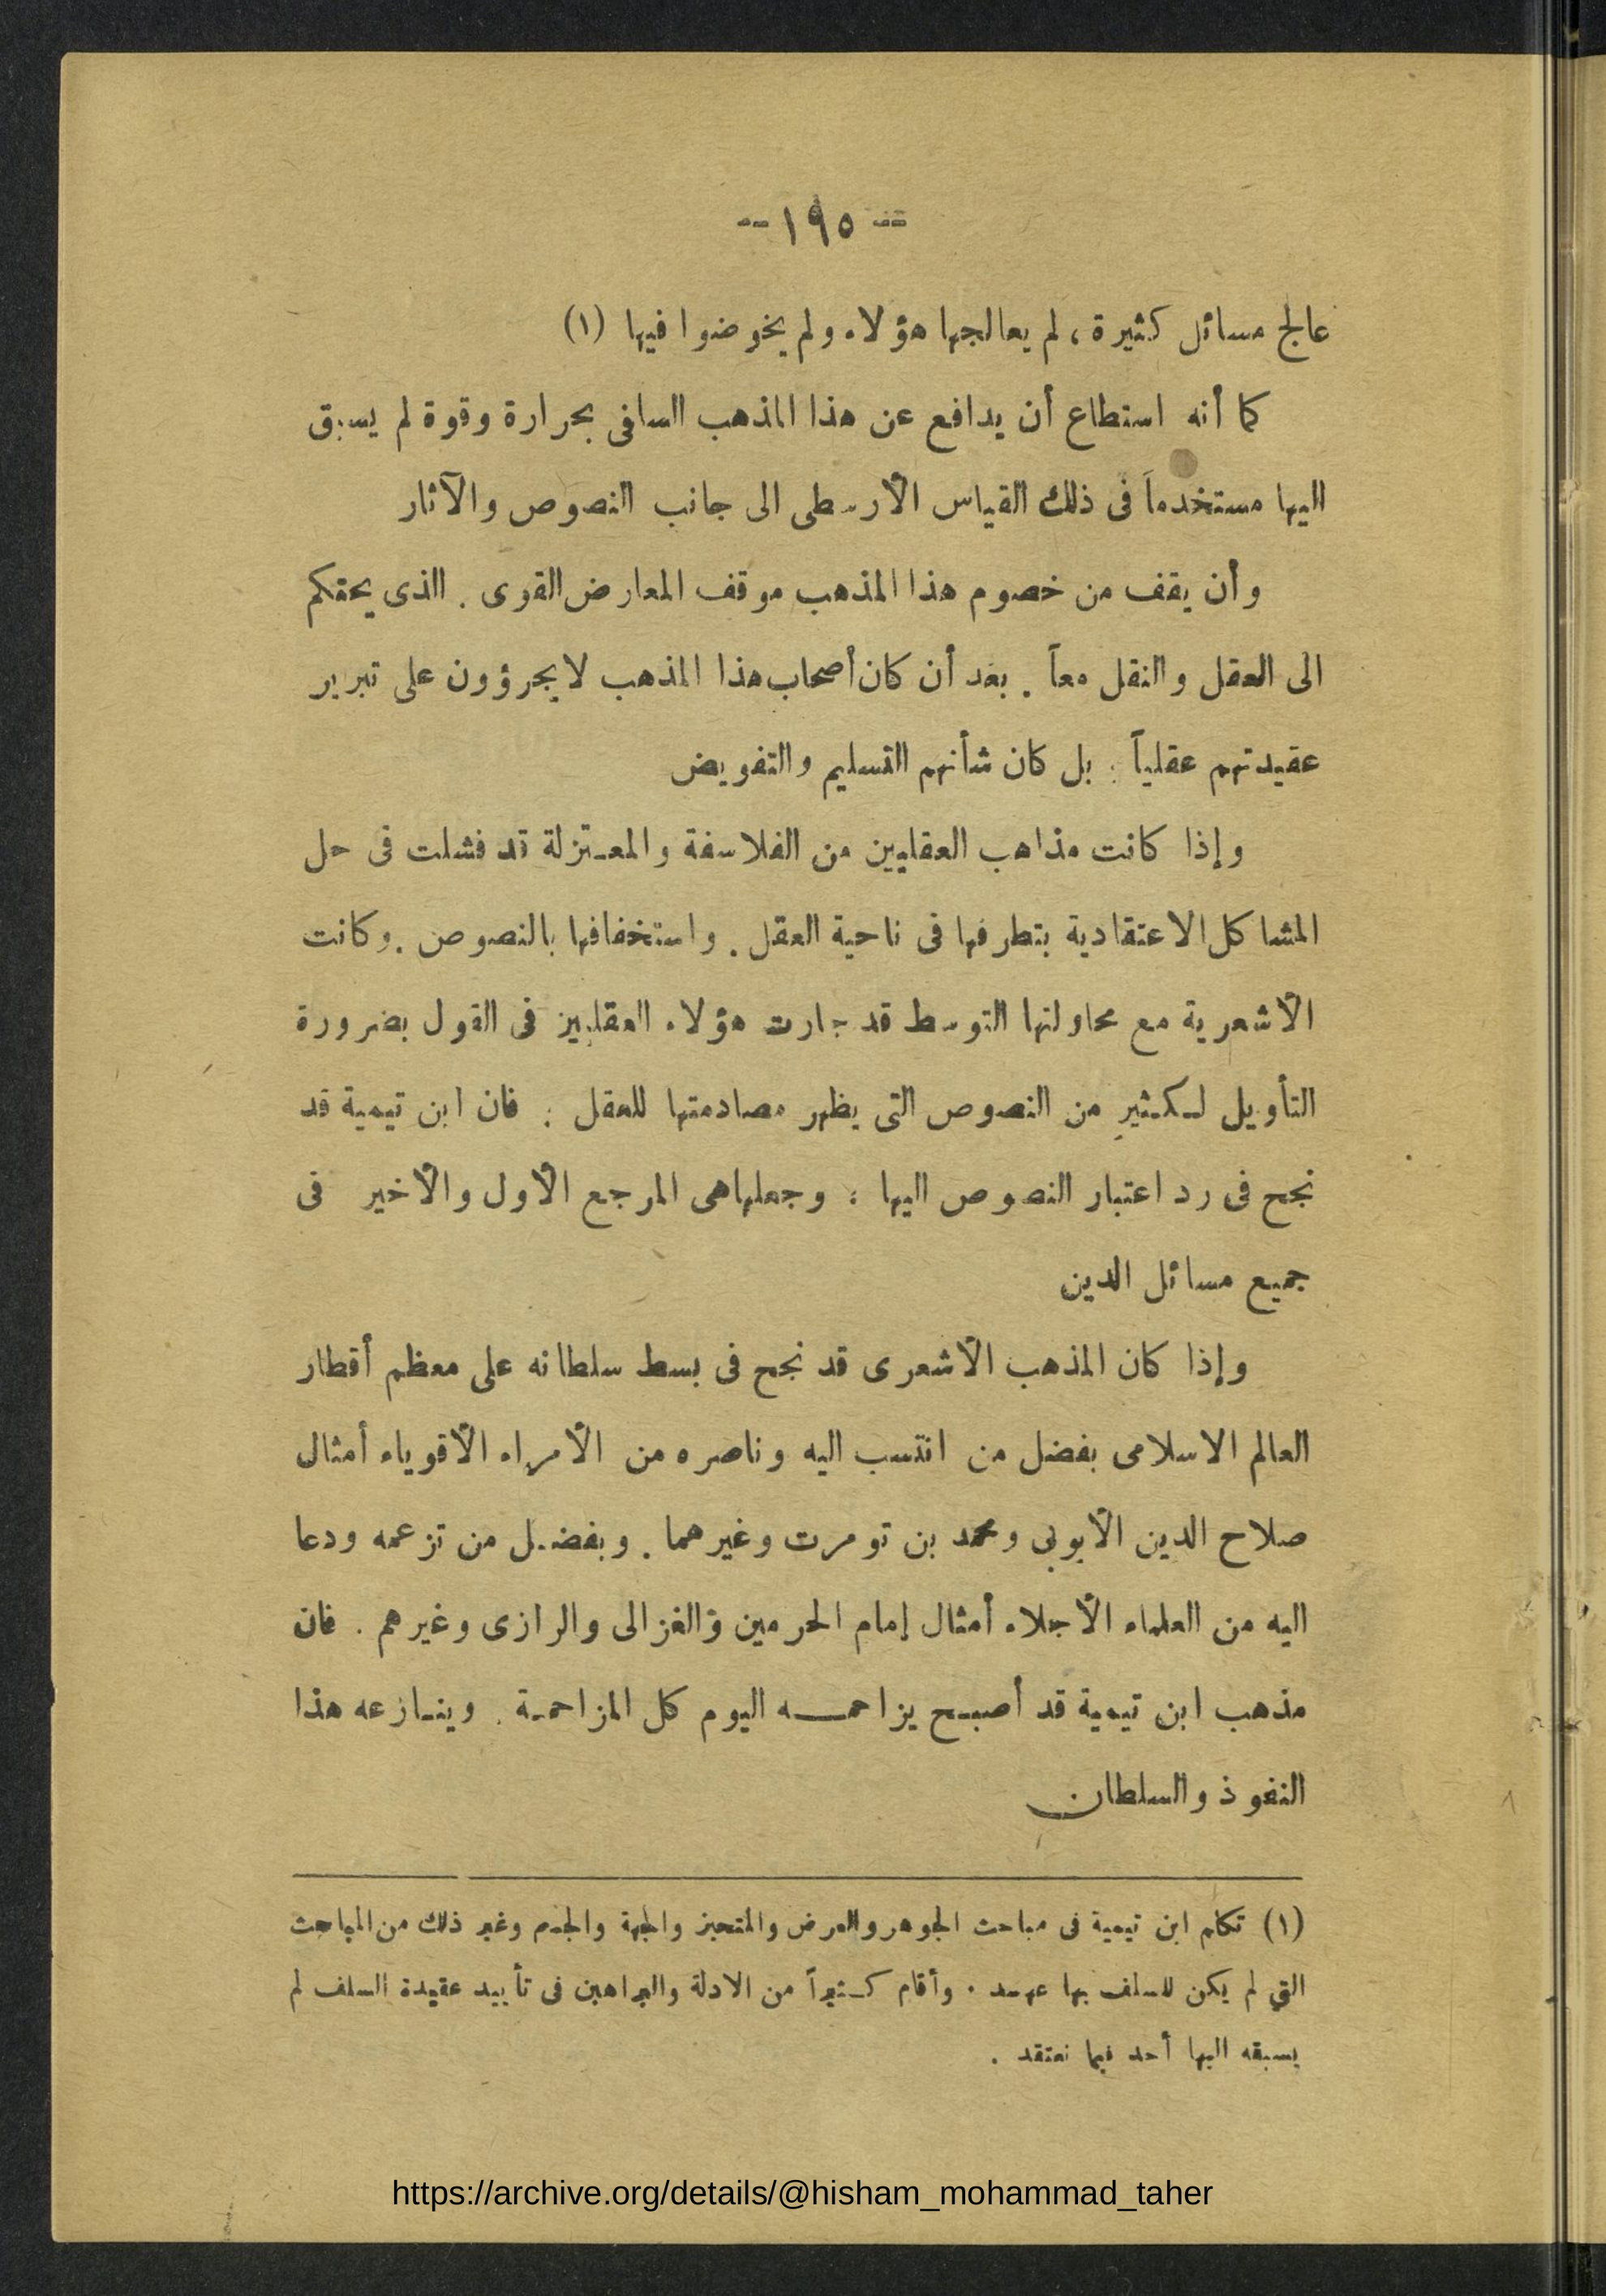 -- ١٩٥ --
عالج مسائل كثيرة ، لم يعالجها هؤلاء ولم يخوضوا فيها (١)
كما أنه استطاع أن يدافع عن هذا المذهب السلفى بحرارة وقوة لم يسبق
اليها مستخدماً فى ذلك القياس الأرسطى الى جانب النصوص والآثار
وأن يقف من خصوم هذا المذهب موقف المعارض القوى . الذى يحتكم
الى العقل والنقل معاً . بعد أن كان أصحاب هذا المذهب لا يجرؤون على تبرير
عقيدتهم عقلياً : بل كان شأنهم التسليم والتفويض
وإذا كانت مذاهب العقليين من الفلاسفة والمعتزلة قد فشلت فى حل
المشاكل الاعتقادية بتطرفها فى ناحية العقل . واستخفافها بالنصوص . وكانت
الأشعرية مع محاولتها التوسط قد جارت هؤلاء العقليين فى القول بضرورة
التأويل لكثير من النصوص التى يظهر مصادمتها للعقل : فان ابن تيمية قد
نجح فى رد اعتبار النصوص اليها : وجعلها هى المرجع الأول والأخير فى
جميع مسائل الدين
وإذا كان المذهب الأشعرى قد نجح فى بسط سلطانه على معظم أقطار
العالم الاسلامى بفضل من انتسب اليه وناصره من الأمراء الأقوياء أمثال
صلاح الدين الأيوبى ومحمد بن تومرت وغيرهما . وبفضل من تزعمه ودعا
اليه من العلماء الأجلاء أمثال إمام الحرمين والغزالى والرازى وغيرهم . فان
مذهب ابن تيمية قد أصبح يزاحمه اليوم كل المزاحمة . وينازعه هذا
النفوذ والسلطان
(١) تكلم ابن تيمية فى مباحث الجوهر والعرض والمتحيز والجهة والجسم وغير ذلك من المباحث
التي لم يكن للسلف بها عهد . وأقام كثيراً من الادلة والبراهين فى تأييد عقيدة السلف لم
يسبقه اليها أحد فيما نعتقد .
https://archive.org/details/@hisham_mohammad_taher